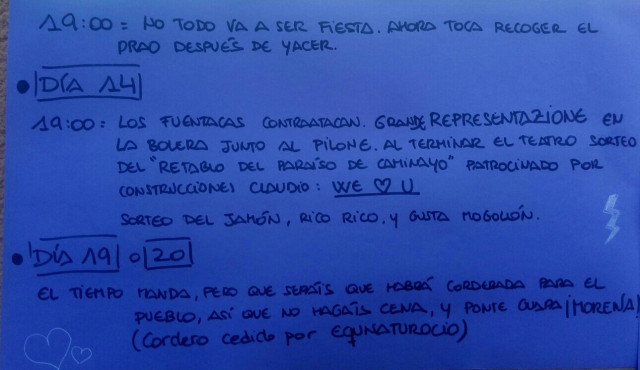 19:00 = NO TODO VA A SER FIESTA. AHORA TOCA RECOGER EL
PRAO DESPUÉS DE YACER.
• DÍA 14
19:00 = LOS FUENTACAS CONTRAATACAN. GRANDE REPRESENTAZIONE EN
LA BOLERA JUNTO AL PILONE. AL TERMINAR EL TEATRO SORTEO
DEL "RETABLO DEL PARAÍSO DE CAMINAYO" PATROCINADO POR
CONSTRUCCIONES CLAUDIO: WE ♡ U
SORTEO DEL JAMÓN, RICO RICO, Y GUSTA MOGOLLÓN.
• DÍA 19 O 20
EL TIEMPO MANDA, PERO QUE SEPÁIS QUE HABRÁ CORDERADA PARA EL
PUEBLO, ASÍ QUE NO HAGÁIS CENA, Y PONTE GUAPA ¡MORENA!
(Cordero cedido por EQUNATUROCIO)